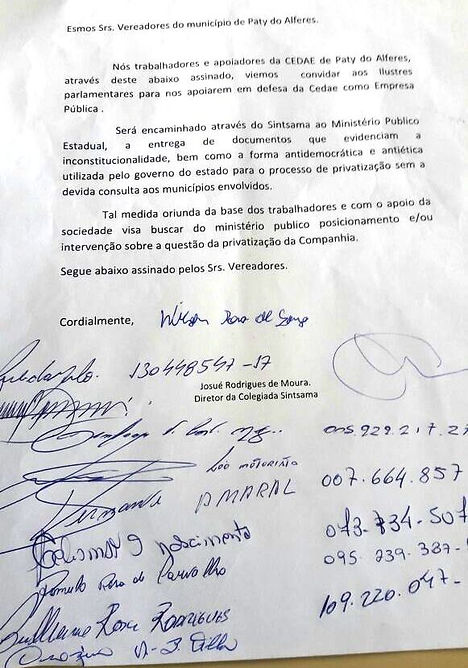 Esmos Srs. Vereadores do município de Paty do Alferes.
Nós trabalhadores e apoiadores da CEDAE de Paty do Alferes,
através deste abaixo assinado, viemos convidar aos Ilustres
parlamentares para nos apoiarem em defesa da Cedae como Empresa
Pública .
Será encaminhado através do Sintsama ao Ministério Publico
Estadual, a entrega de documentos que evidenciam a
inconstitucionalidade, bem como a forma antidemocrática e antiética
utilizada pelo governo do estado para o processo de privatização sem a
devida consulta aos municípios envolvidos.
Tal medida oriunda da base dos trabalhadores e com o apoio da
sociedade visa buscar do ministério publico posicionamento e/ou
intervenção sobre a questão da privatização da Companhia.
Segue abaixo assinado pelos Srs. Vereadores.
Cordialmente,
130448547-17
Josué Rodrigues de Moura.
Diretor da Colegiada Sintsama
Léo motorista
007.664.857
Fernanda AMARAL
073.734.507
nascimento
095.239.387-
Romulo Rosa de Carvalho
109.220.047-
Guilherme Rosa Rodrigues